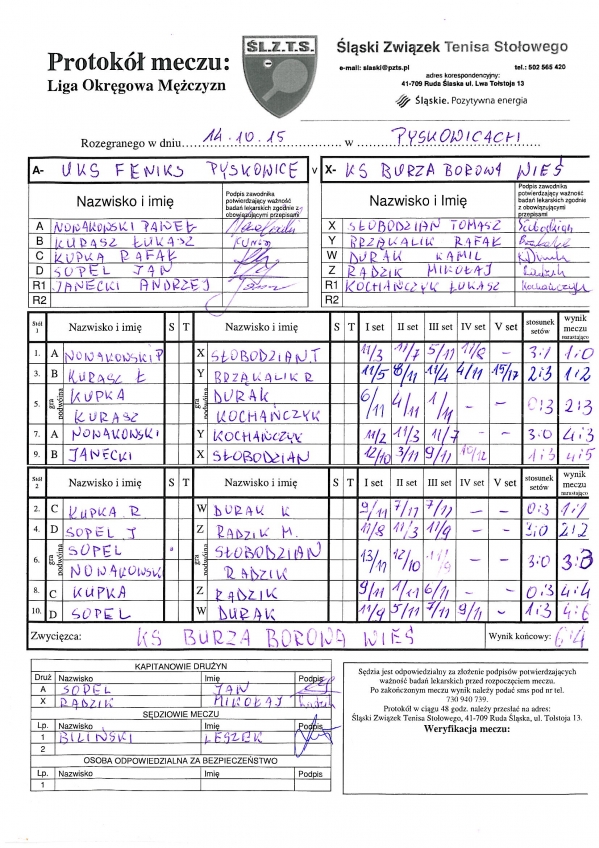 Protokół meczu:
Liga Okręgowa Mężczyzn
ŚL.Z.T.S.
Śląski Związek Tenisa Stołowego
e-mail: slaski@pzts.pl tel.: 502 565 420
adres korespondencyjny:
41-709 Ruda Śląska ul. Lwa Tołstoja 13
Śląskie. Pozytywna energia
Rozegranego w dniu 14.10.15 w PYSKOWICACH
A- UKS FENIKS PYSKOWICE v X- KS BURZA BOROWA WIEŚ
Nazwisko i imię Podpis zawodnika potwierdzający ważność badań lekarskich zgodnie z obowiązującymi przepisami Nazwisko i imię Podpis zawodnika potwierdzający ważność badań lekarskich zgodnie z obowiązującymi przepisami
A NOWAKOWSKI PAWEŁ X SŁOBODZIAN TOMASZ
B KURASZ ŁUKASZ Y BRZĄKALIK RAFAŁ
C KUPKA RAFAŁ W DURAK KAMIL
D SOPEL JAN Z RADZIK MIKOŁAJ
R1 JANECKI ANDRZEJ R1 KOCHAŃCZYK ŁUKASZ
R2 R2
Stół 1 Nazwisko i imię S T Nazwisko i imię S T I set II set III set IV set V set stosunek setów wynik meczu narastająco
1. A NOWAKOWSKI P X SŁOBODZIAN T 11/3 11/7 5/11 11/8 - 3:1 1:0
3. B KURASZ Ł Y BRZĄKALIK R 11/5 8/11 11/4 4/11 15/17 2:3 1:2
5. gra podwójna KUPKA KURASZ DURAK KOCHAŃCZYK 6/11 4/11 1/11 - - 0:3 2:3
7. A NOWAKOWSKI Y KOCHAŃCZYK 11/2 11/3 11/7 - - 3:0 4:3
9. B JANECKI X SŁOBODZIAN 12/10 3/11 9/11 10/12 - 1:3 4:5
Stół 2 Nazwisko i imię S T Nazwisko i imię S T I set II set III set IV set V set stosunek setów wynik meczu narastająco
2. C KUPKA R W DURAK K 9/11 7/11 7/11 - - 0:3 1:1
4. D SOPEL J Z RADZIK M. 11/8 11/3 11/9 - - 3:0 2:2
6. gra podwójna SOPEL NOWAKOWSKI SŁOBODZIAN RADZIK 13/11 12/10 11/9 - - 3:0 3:3
8. C KUPKA Z RADZIK 9/11 1/11 6/11 - - 0:3 4:4
10. D SOPEL W DURAK 11/9 5/11 7/11 9/11 - 1:3 4:6
Zwycięzca: KS BURZA BOROWA WIEŚ Wynik końcowy: 6:4
KAPITANOWIE DRUŻYN
Druż Nazwisko Imię Podpis
A SOPEL JAN
X RADZIK MIKOŁAJ
SĘDZIOWIE MECZU
Lp. Nazwisko Imię Podpis
1 BILIŃSKI LESZEK
2
OSOBA ODPOWIEDZIALNA ZA BEZPIECZEŃSTWO
Lp. Nazwisko Imię Podpis
1
Sędzia jest odpowiedzialny za złożenie podpisów potwierdzających
ważność badań lekarskich przed rozpoczęciem meczu.
Po zakończonym meczu wynik należy podać sms pod nr tel.
730 940 739.
Protokół w ciągu 48 godz. należy przesłać na adres:
Śląski Związek Tenisa Stołowego, 41-709 Ruda Śląska, ul. Tołstoja 13.
Weryfikacja meczu: